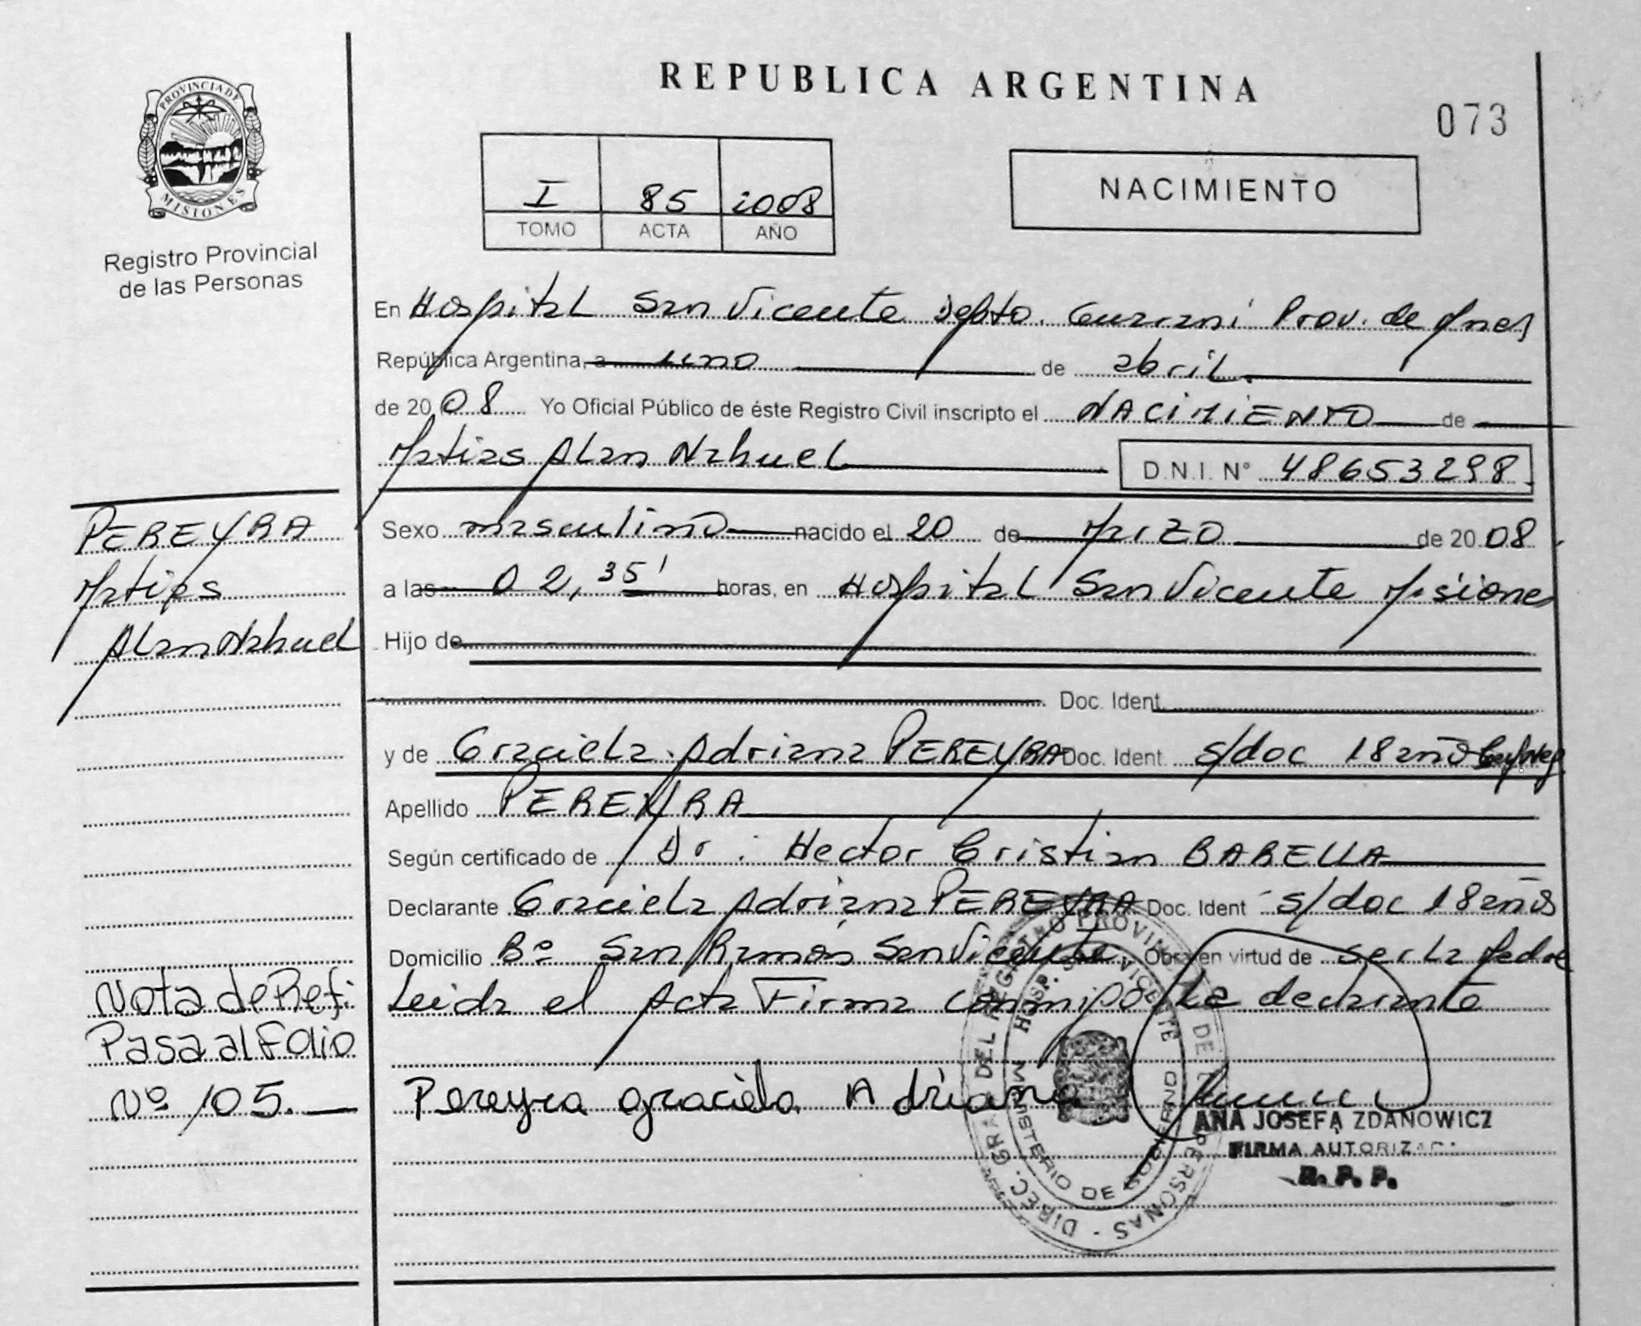 REPUBLICA ARGENTINA
073
PROVINCIA DE
MISIONES
Registro Provincial
de las Personas
I 85 2008
TOMO ACTA AÑO
NACIMIENTO
En Hospital San Vicente Depto. Guarani Prov. de Mnes
República Argentina, a uno de abril.
de 20 08 Yo Oficial Público de éste Registro Civil inscripto el NACIMIENTO de
Matias Alan Nahuel D.N.I. N° 48653298
PEREYRA
Matias
Alan Nahuel
Sexo masculino nacido el 20 de Marzo de 20 08
a las 02,35' horas, en Hospital San Vicente Misiones
Hijo de
Doc. Ident.
y de Graciela Adriana PEREYRA Doc. Ident. s/doc 18 años
Apellido PEREYRA
Según certificado de Dr: Hector Cristian BARELLA
Declarante Graciela Adriana PEREYRA Doc. Ident s/doc 18 años
Domicilio B° San Ramón San Vicente Obra en virtud de ser la Madre
Leida el Acta Firma conmigo la declarante
Nota de Ref:
Pasa al Folio
Nº 105.
Pereyra graciela Adriana
DIREC. GRAL. DEL REGISTRO PROVINCIAL DE LAS PERSONAS -
HOSP. SAN VICENTE
MINISTERIO DE GOBIERNO
ANA JOSEFA ZDANOWICZ
FIRMA AUTORIZADA
R. P. P.